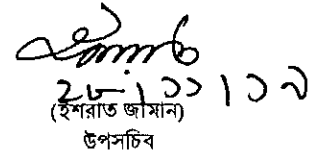 ২৮।১১।১৯
(ইশরাত জামান)
উপসচিব